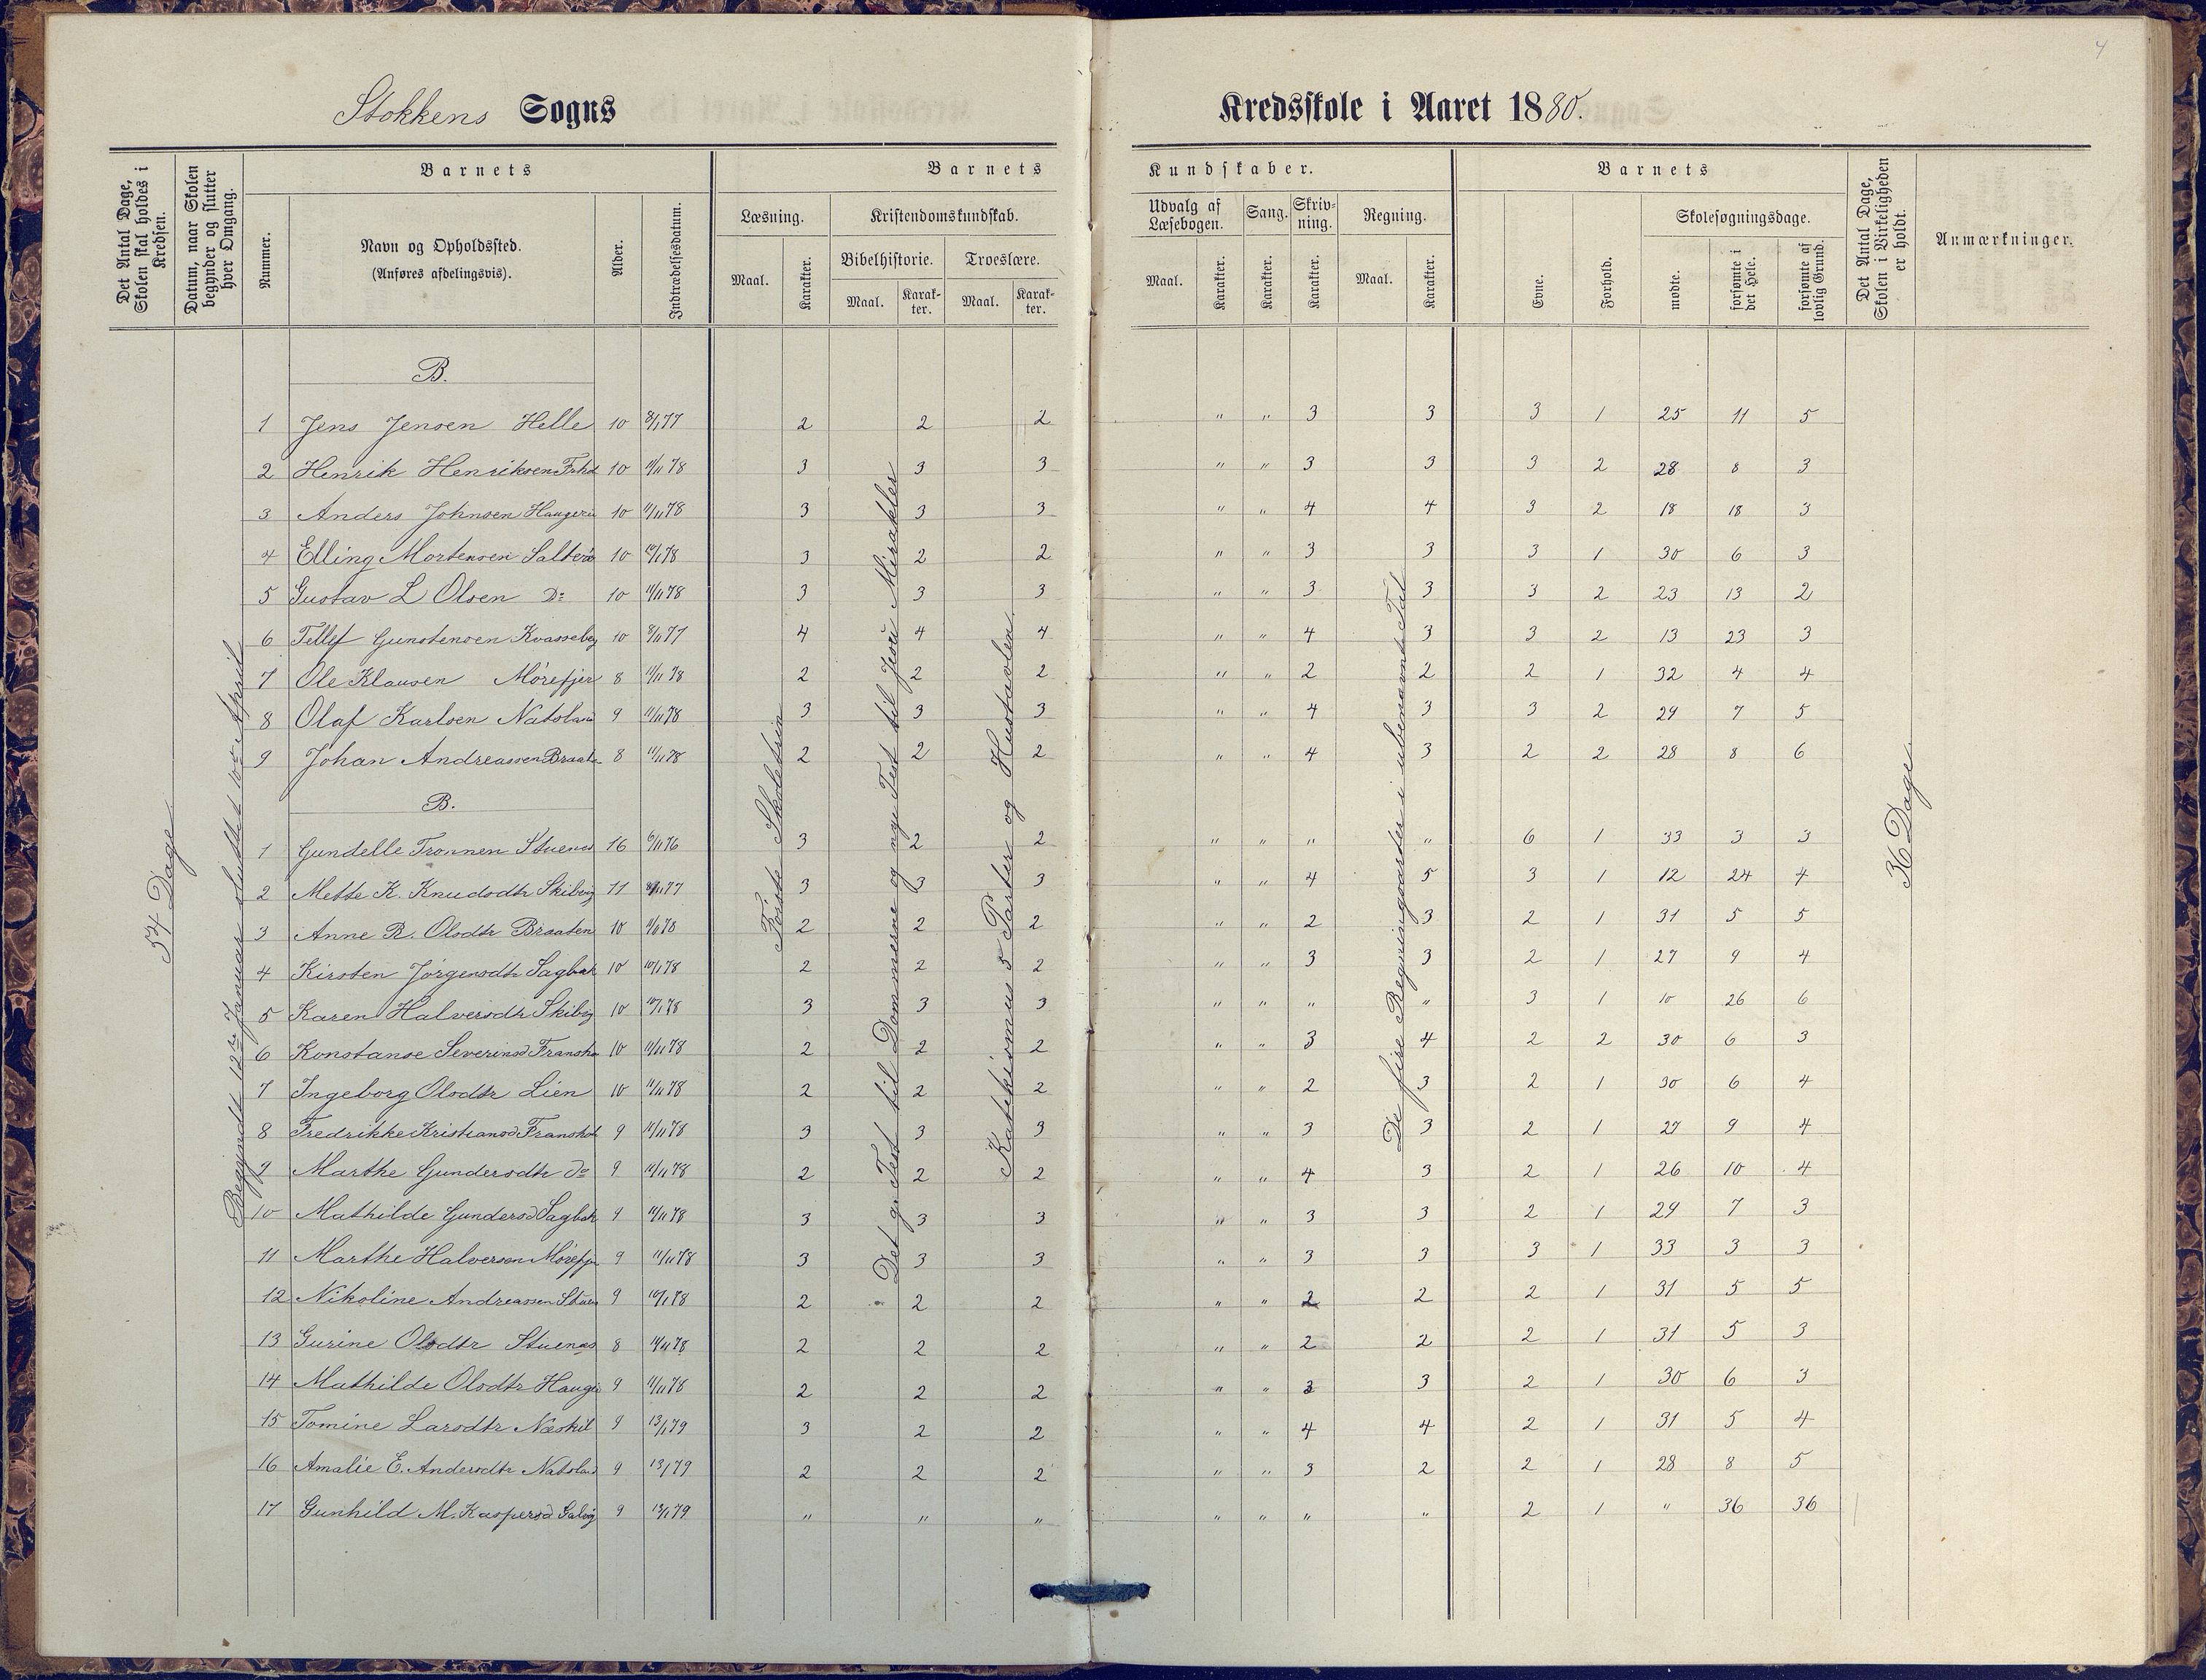 4
Stokkens Sogns Kredsskole i Aaret 1880.
Det Antal Dage, Skolen skal holdes i Kredsen.
Datum, naar Skolen begynder og slutter hver Omgang.
Barnets
Nummer.
Navn og Opholdssted.
(Anføres afdelingsvis).
Alder.
Indtrædelsesdatum.
Barnets Kundskaber.
Læsning.
Maal. Karakter.
Kristendomskundskab.
Bibelhistorie. Troeslære.
Maal. Karakter. Maal. Karakter.
Udvalg af Læsebogen. Sang. Skrivning. Regning.
Maal. Karakter. Karakter. Karakter. Maal. Karakter.
Barnets
Evne. Forhold.
Skolesøgningsdage.
mødte. forsømte i det Hele. forsømte af lovlig Grund.
Det Antal Dage, Skolen i Virkeligheden er holdt.
Anmærkninger.
54 Dage
Begyndt 12te Januar sluttet 10de April
Første Skoletrin
Det gl. Test til Dommerne og nye Test til Jesu Mirakler
Katekismus 5 Parter og Hustavlen
De fire Regningsarter i ubenævnte Tal
36 Dage
B.
1 Jens Jensen Helle 10 8/1 77 2 2 2 " " 3 3 3 1 25 11 5
2 Henrik Henriksen 10 11/11 78 3 3 3 " " 3 3 3 2 28 8 3
3 Anders Johnsen 10 11/11 78 3 3 3 " " 4 4 3 2 18 18 3
4 Elling Mortensen Salterø 10 10/1 78 3 2 2 " " 3 3 3 1 30 6 3
5 Gustav L Olsen Do 10 11/11 78 3 3 3 " " 3 3 3 2 23 13 2
6 Tellef Gunstensen 10 8/11 77 4 4 4 " " 4 3 3 2 13 23 3
7 Ole Klausen Mörefjer 8 11/11 78 2 2 2 " " 2 2 2 1 32 4 4
8 Olaf Karlsen Natvland 9 11/11 78 3 3 3 " " 4 3 3 2 29 7 5
9 Johan Andreassen Braaten 8 11/11 78 2 2 2 " " 4 3 2 2 28 8 6
B.
1 Gundelle Tronnen Stuenes 16 6/11 76 3 2 2 " " " " 6 1 33 3 3
2 Mette K. Knudsdtr Skibvig 11 77 3 3 3 " " 4 5 3 1 12 24 4
3 Anne R. Olsdtr Braaten 10 78 2 2 2 " " 2 3 2 1 31 5 5
4 Kirsten Jörgensdtr Sagbak 10 10/1 78 2 2 2 " " 3 3 2 1 27 9 4
5 Karen Halversdtr Skibvig 10 10/1 78 3 3 3 " " " " 3 1 10 26 6
6 Konstanse Severinsd 10 11/11 78 2 2 2 " " 3 4 2 2 30 6 3
7 Ingeborg Olsdtr Lien 10 11/11 78 2 2 2 " " 2 3 2 1 30 6 4
8 Fredrikke Kristiansd 9 11/11 78 3 3 3 " " 3 3 2 1 27 9 4
9 Marthe Gundersdtr do 9 11/11 78 2 2 2 " " 4 3 2 1 26 10 4
10 Mathilde Gundersd Sagbak 9 11/11 78 3 3 3 " " 3 3 2 1 29 7 3
11 Marthe Halversen Mörefjer 9 11/11 78 3 3 3 " " 3 3 3 1 33 3 3
12 Nikoline Andreassen Stuen 9 10/1 78 2 2 2 " " 2 2 2 1 31 5 5
13 Gurine Olsdtr Stuenes 8 11/11 78 2 2 2 " " 2 2 2 1 31 5 3
14 Mathilde Olsdtr 9 11/11 78 2 2 2 " " 3 3 2 1 30 6 3
15 Tomine Larsdtr Neskil 9 13/1 79 3 2 2 " " 4 4 2 1 31 5 4
16 Amalie E. Andersdtr Natvland 9 13/1 79 2 2 2 " " 3 2 2 1 28 8 5
17 Gunhild M. Kaspersd 9 13/1 79 " " " " " " " 2 1 " 36 36